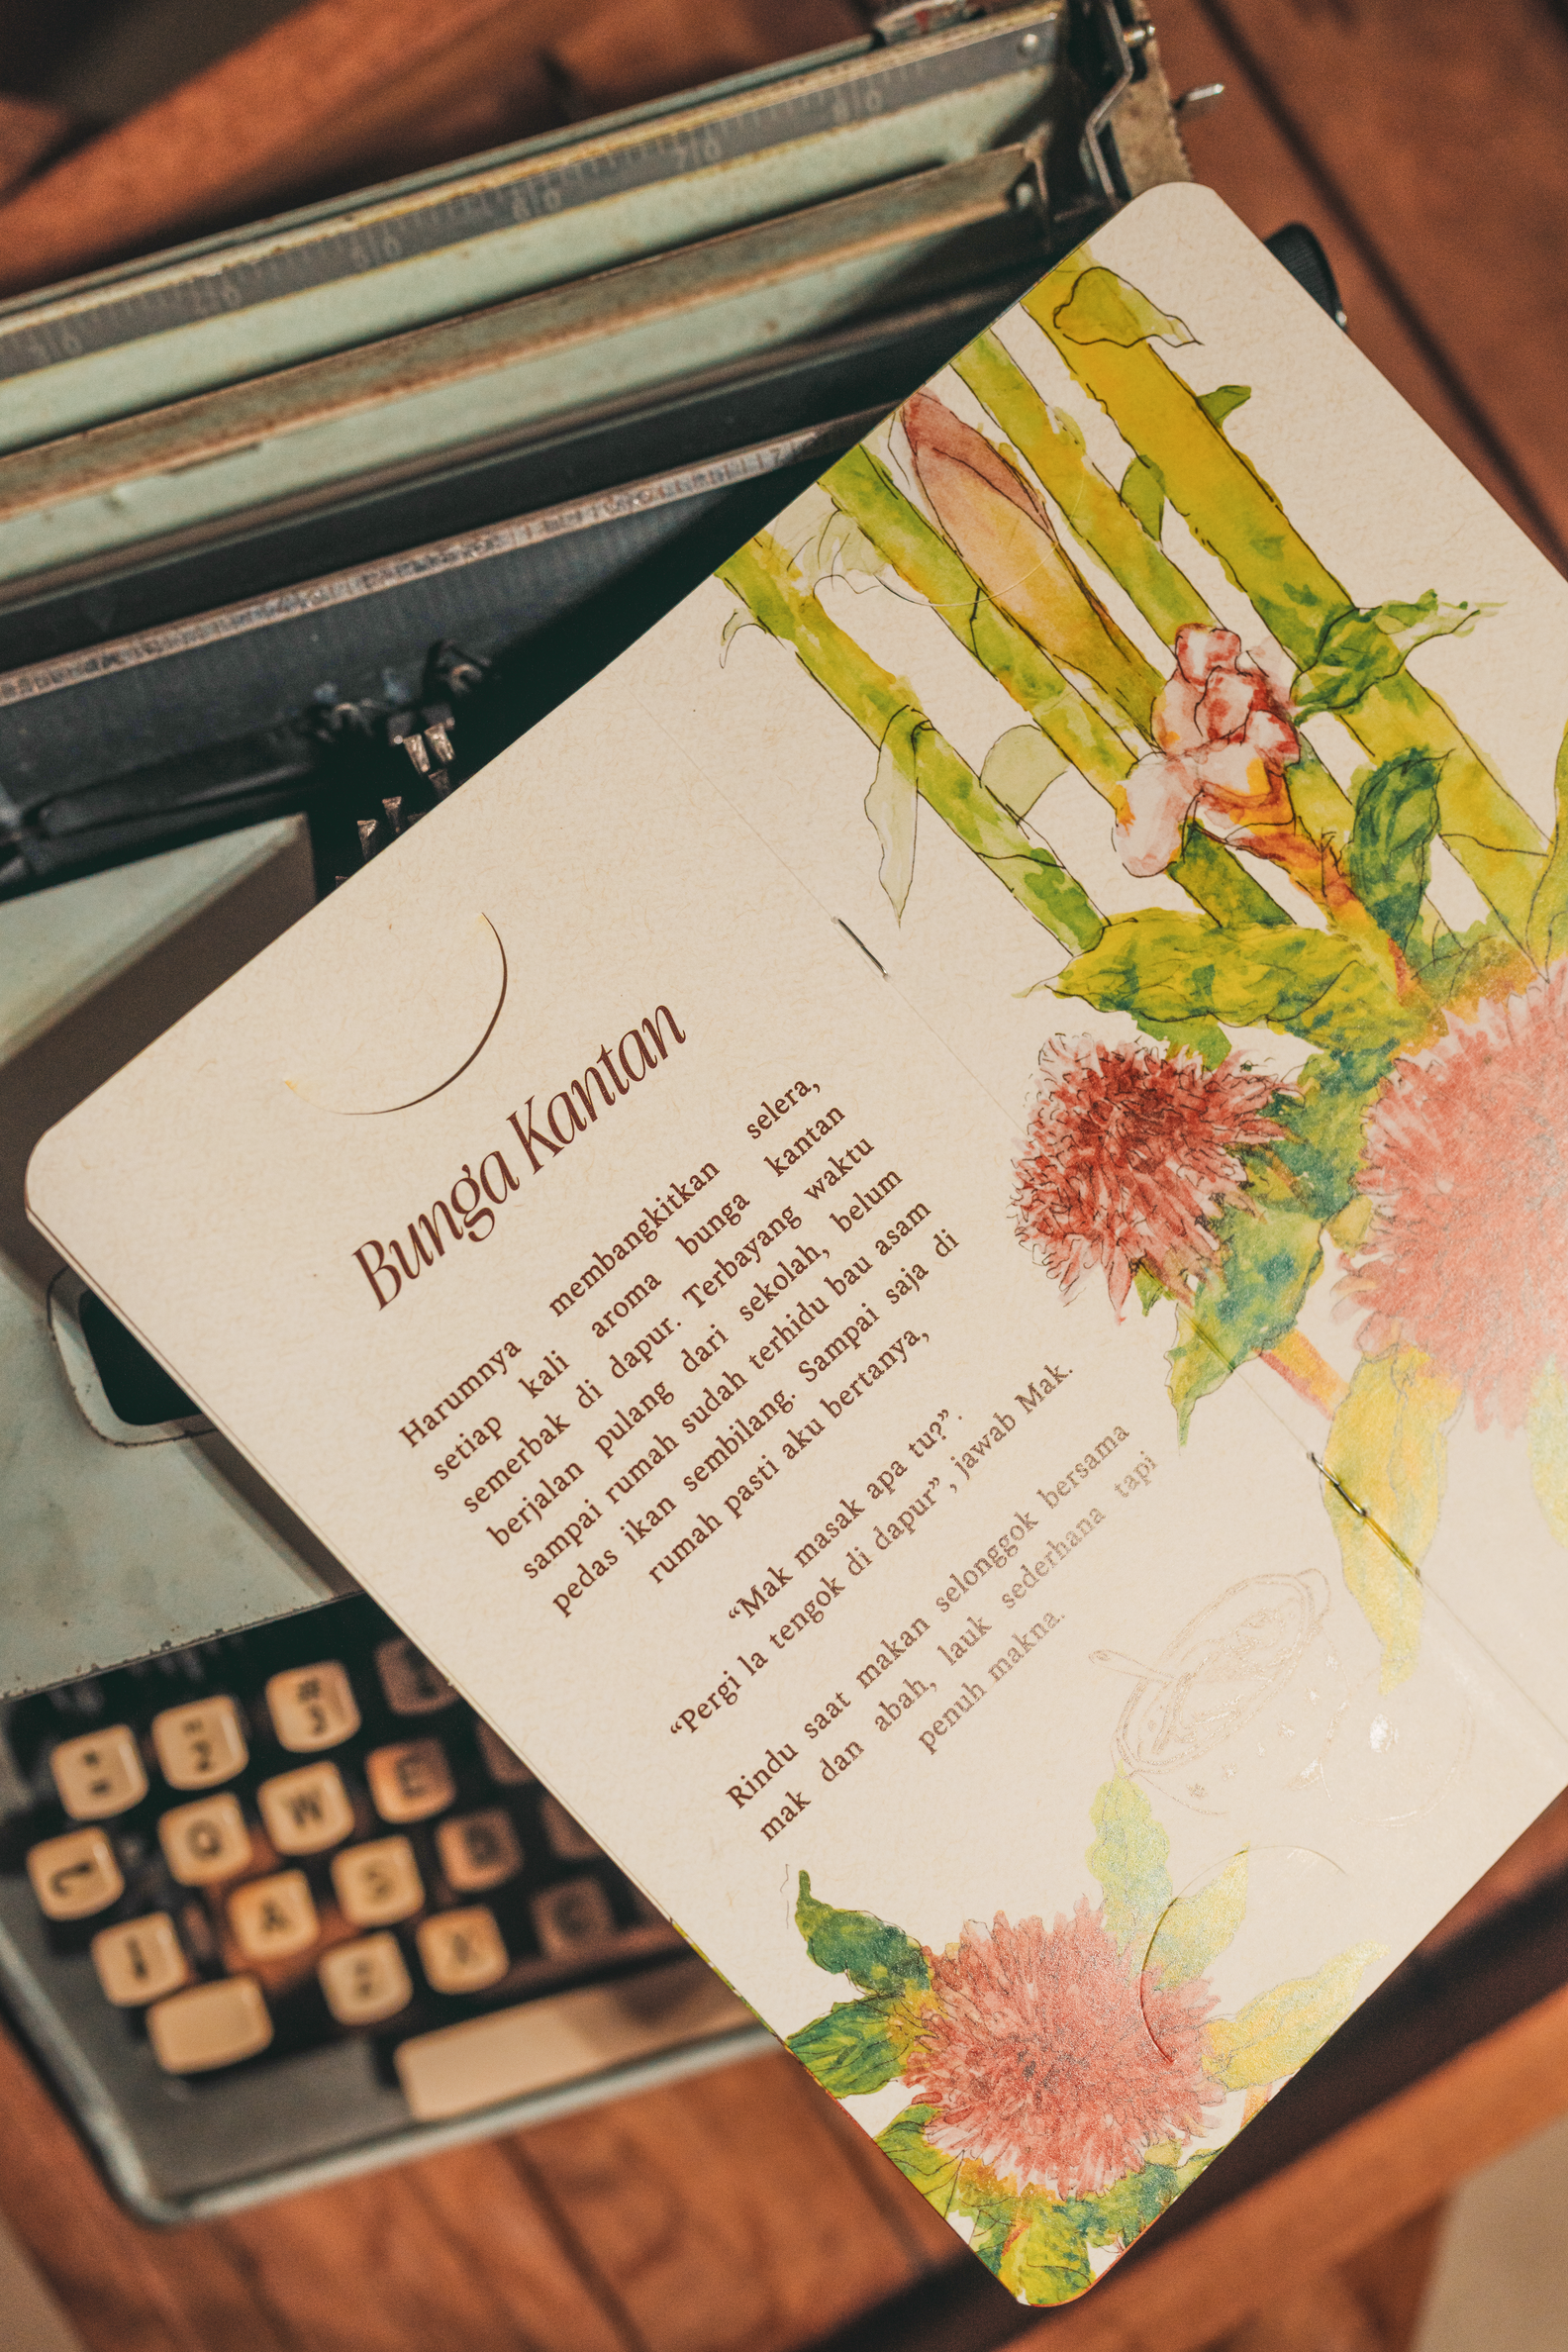 Bunga Kantan
Harumnya membangkitkan selera,
setiap kali aroma bunga kantan
semerbak di dapur. Terbayang waktu
berjalan pulang dari sekolah, belum
sampai rumah sudah terhidu bau asam
pedas ikan sembilang. Sampai saja di
rumah pasti aku bertanya,
“Mak masak apa tu?”.
“Pergi la tengok di dapur”, jawab Mak.
Rindu saat makan selonggok bersama
mak dan abah, lauk sederhana tapi
penuh makna.
2 3
Q W E
A S D
Z X C